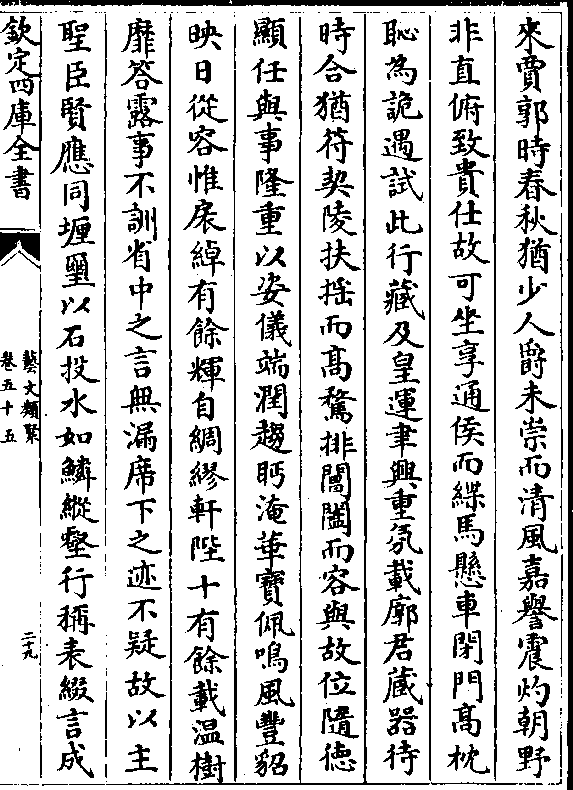 來賈郭時春秋猶少人爵未崇而清風嘉譽震灼朝野
非直俯致貴仕故可坐享通侯而緤馬懸車閉門高枕
恥為詭遇試此行藏及皇運聿興重氛載廓君蔵器待
時合猶符契陵扶揺而高騖排閶闔而容與故位隨德
顯任與事隆重以姿儀端潤趨眄淹華寶佩鳴風豐貂
映日從容帷扆綽有餘輝自綢繆軒陛十有餘載温樹
靡答露事不訓省中之言無漏席下之迹不疑故以主
聖臣賢應同堙璽以石投水如鱗縱壑行稱表綴言成
欽定四庫全書
藝文類聚
卷五十五
二十九